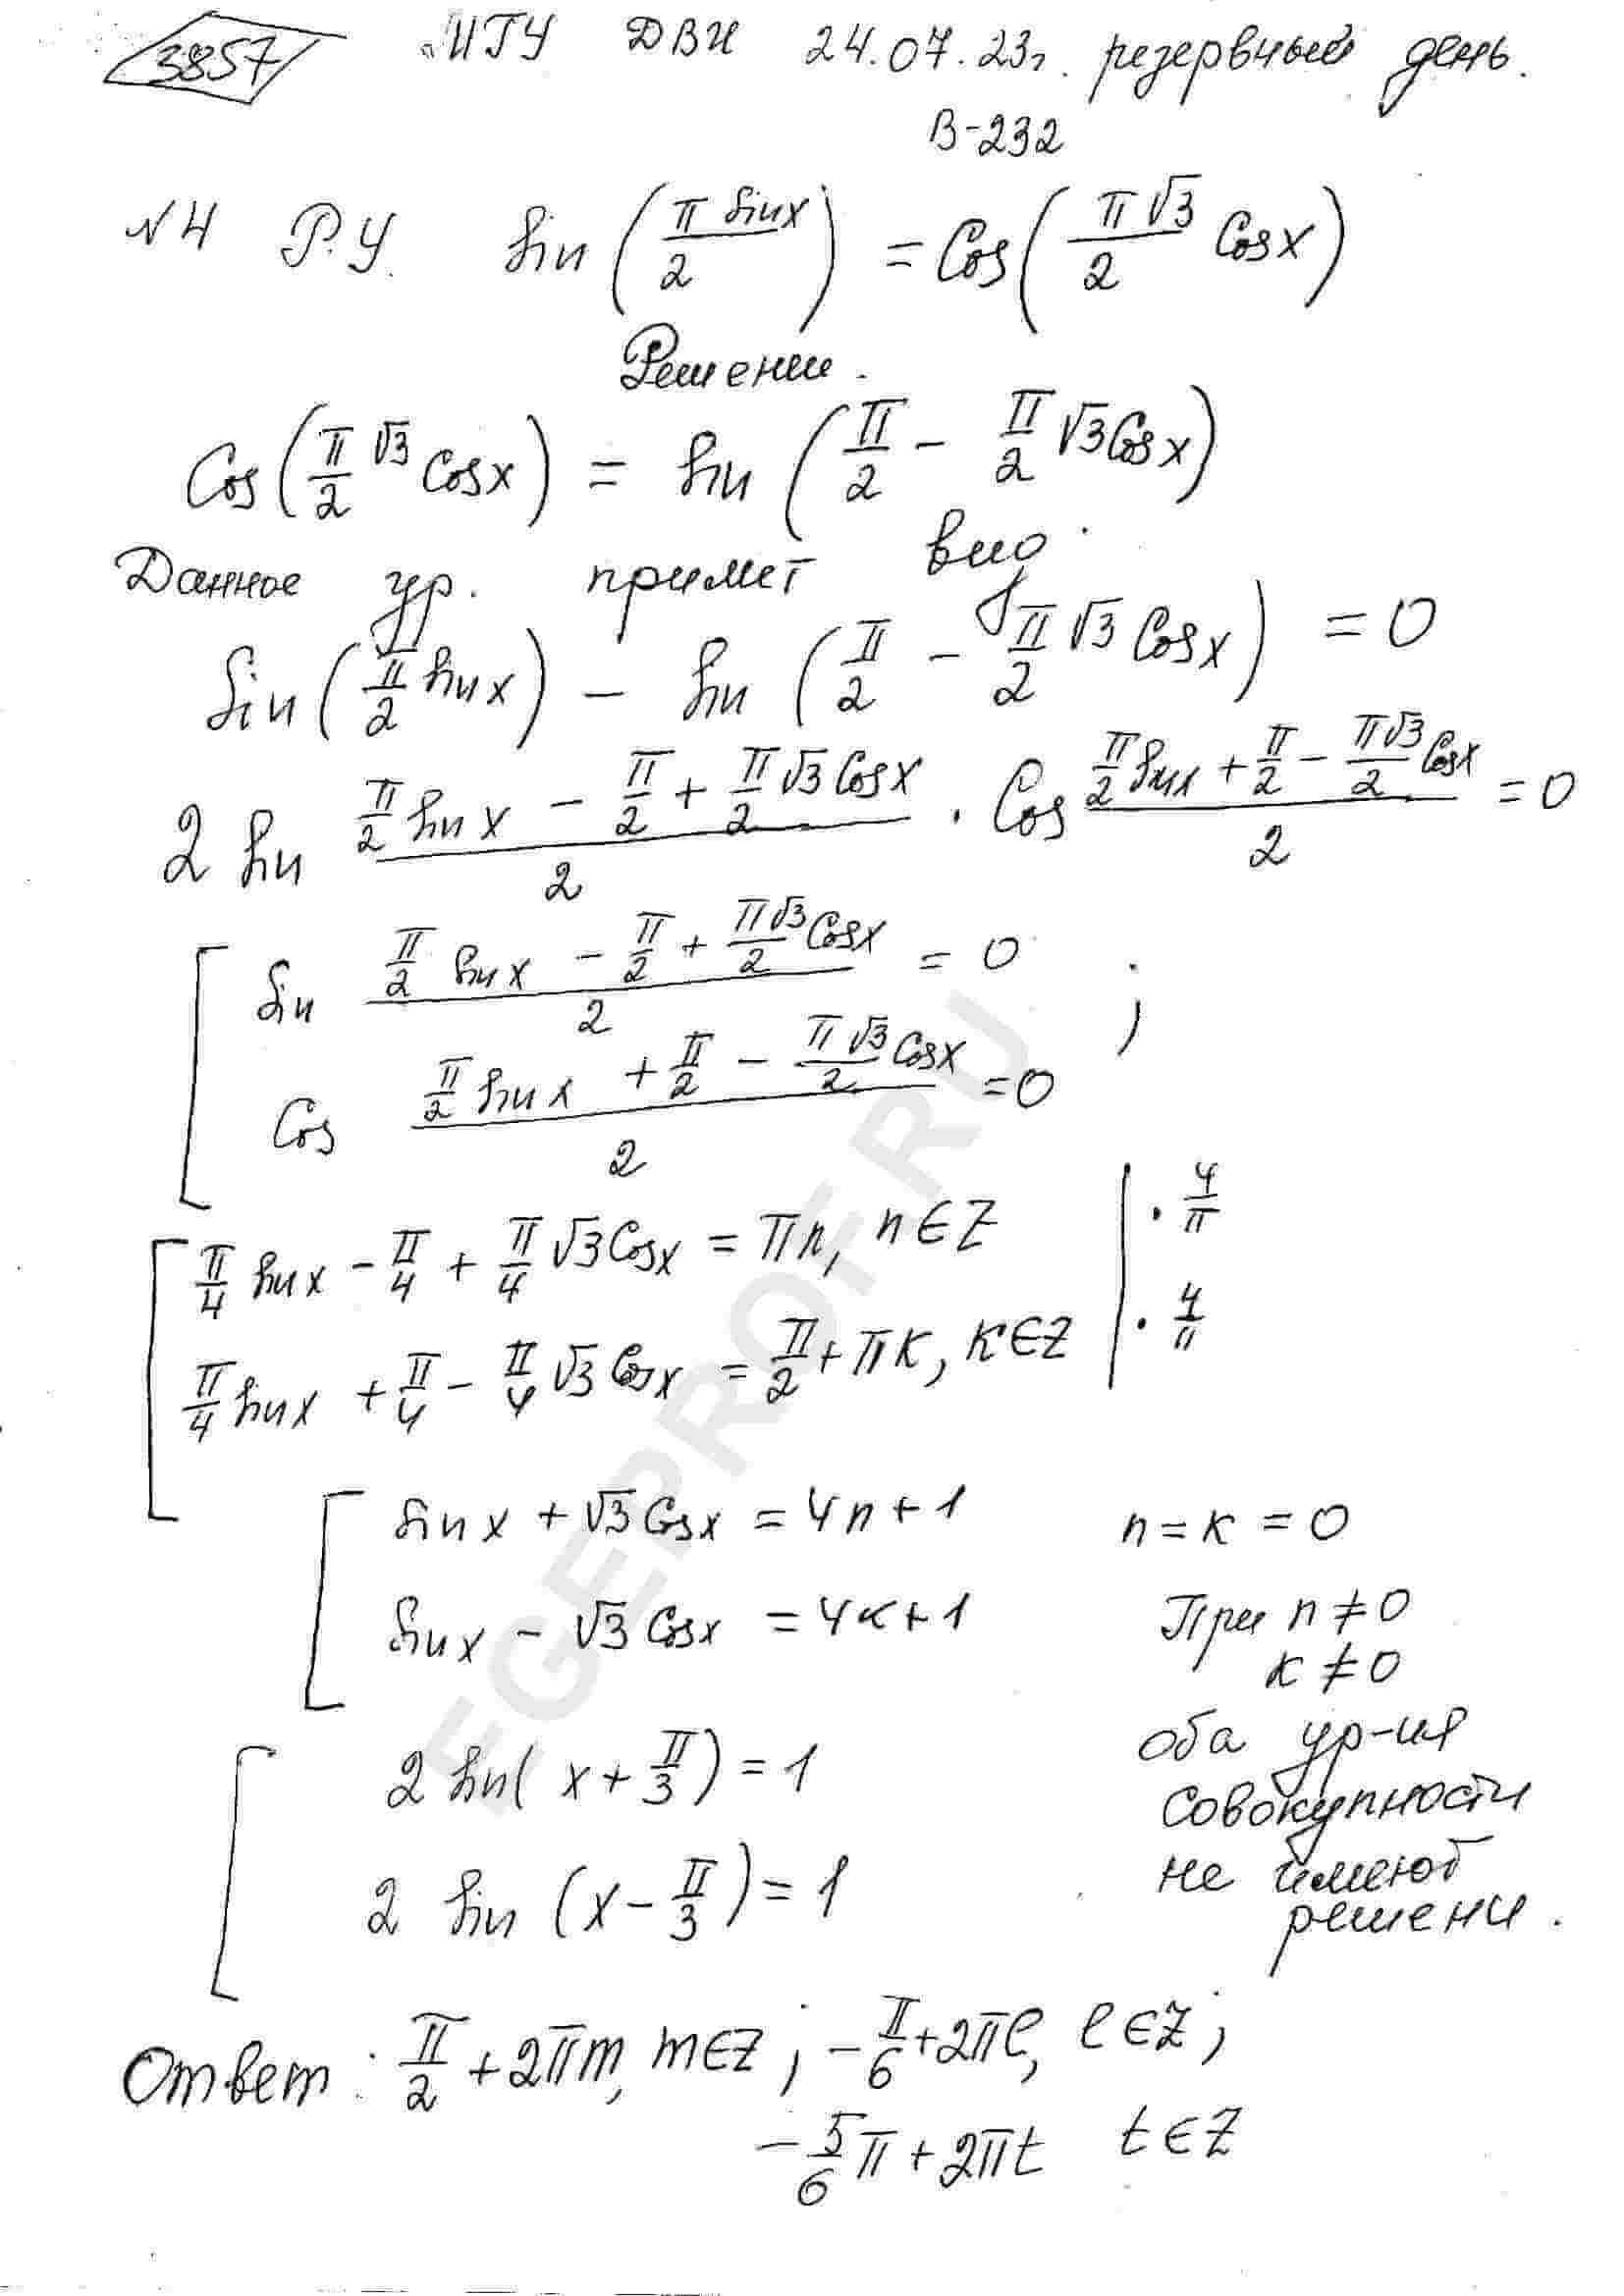 3857 МГУ ДВИ 24.07.23г. резервный день.
В-232
№4 Р.У. sin(π sinx/2) = Cos(π√3/2 Cosx)
Решение.
Cos(π/2 √3 Cosx) = sin(π/2 - π/2 √3Cosx)
Данное ур. примет вид:
sin(π/2 sinx) - sin(π/2 - π/2 √3 Cosx) = 0
2 sin (π/2 sinx - π/2 + π/2 √3 Cosx)/2 · Cos (π/2 sinx + π/2 - π√3/2 Cosx)/2 = 0
[ sin (π/2 sinx - π/2 + π√3/2 Cosx)/2 = 0 ;
Cos (π/2 sinx + π/2 - π√3/2 Cosx)/2 = 0
[ π/4 sinx - π/4 + π/4 √3Cosx = πn, n∈Z | · 4/π
π/4 sinx + π/4 - π/4 √3 Cosx = π/2 + πk, k∈Z | · 4/π
[ sinx + √3 Cosx = 4n+1 n = k = 0
sinx - √3 Cosx = 4k+1 При n ≠ 0
k ≠ 0
оба ур-ия
совокупности
не имеют
решени.
[ 2 sin(x + π/3) = 1
2 sin(x - π/3) = 1
Ответ: π/2 + 2πm, m∈Z; -π/6 + 2πl, l∈Z;
-5/6 π + 2πt t∈Z
EGEPROF.RU